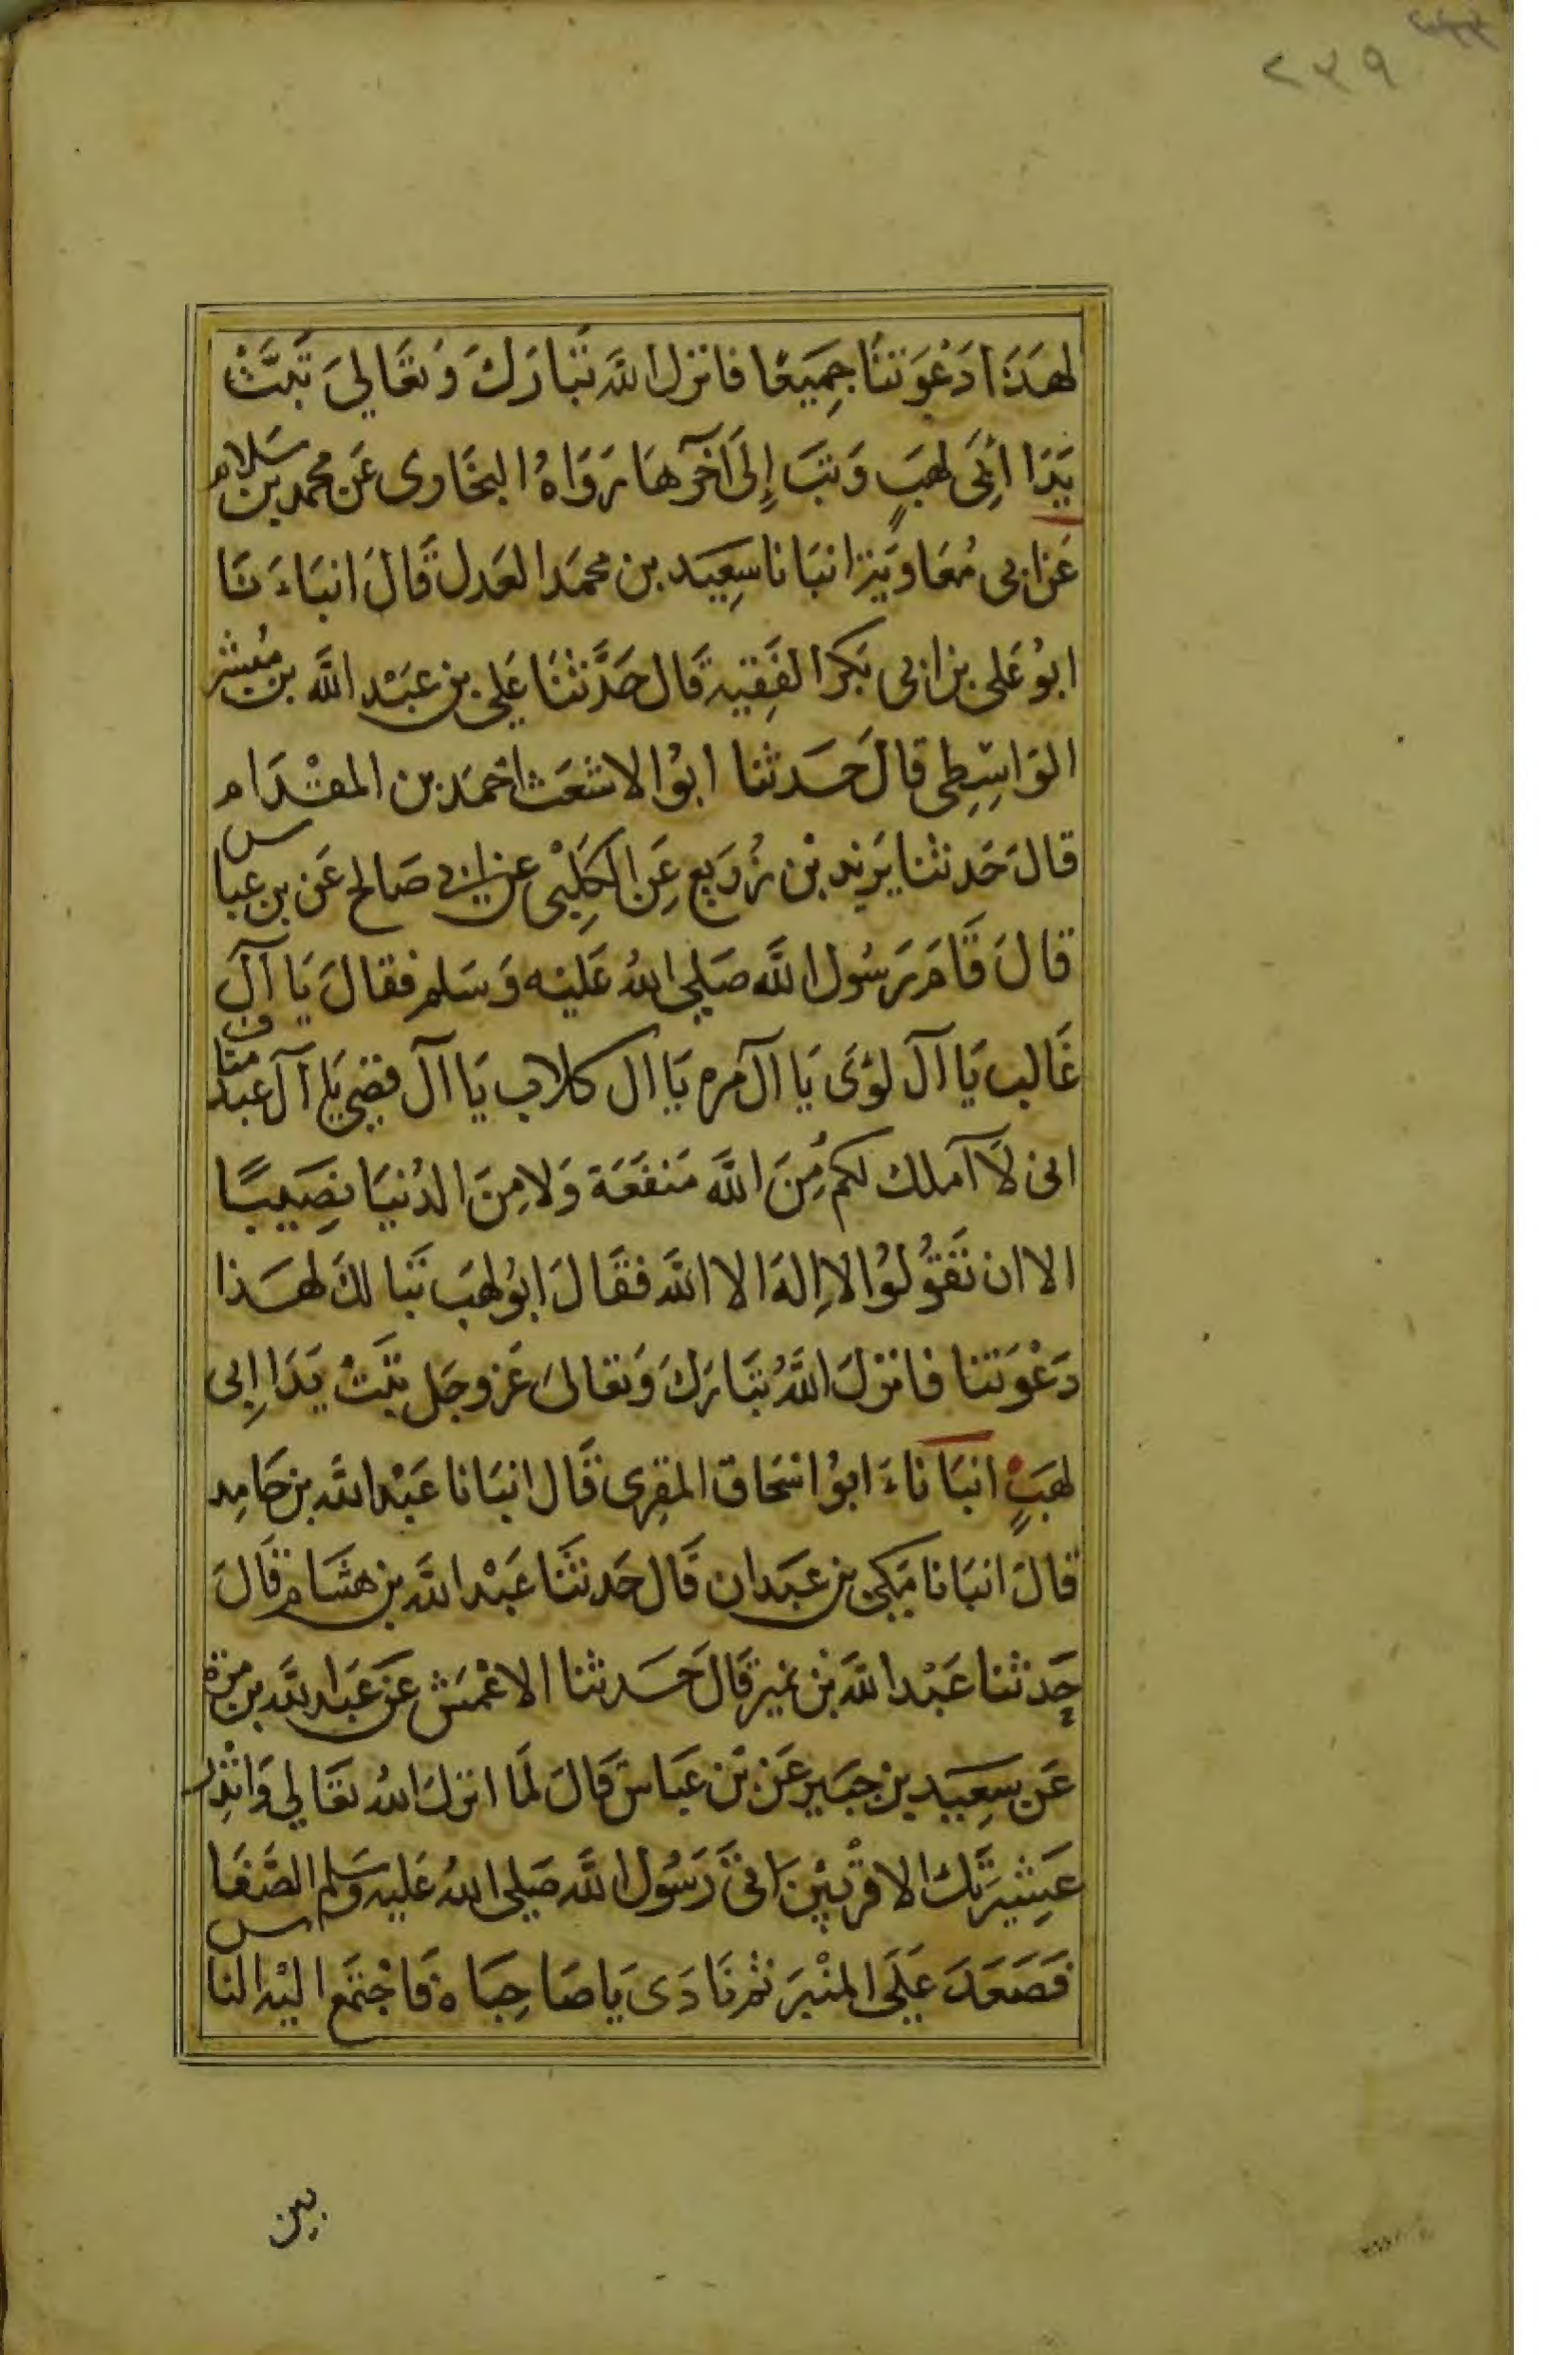 ٢٣٩
لهَذَا دَعَوتنَا جمَيعًا فانزل الله تَبَارَكَ وَتعَالىَ تَبَّتْ
يَدَا ابَىِ لهَبٍ وَتبَ إِلىَ آخرهَا رَوَاهُ البخَاوى عَن محمد بن سَلام
عَن ابى مُعَاويَة انبَانا سَعِيَد بن محمَد العَدل قَالَ انبَاءَ نَا
ابوُ عَلى بن ابى بَكر الفَقِيه قَال حَدَّثنَا عَلى بن عبَدْ الله بن مُبشر
الوَاسِطى قالَ حَدثنا ابوُ الاشعَث احمَد بن المقدَام
قالَ حَدثنا يَزيد بْن زُرَيع عَنِ الكَلِبْى عن ابى صَالح عَن بن عبَاس
قالَ قَامَ رَسُول اللَّه صَلى اللهُ عَليْه وَسَلم فقالَ يَا آلَ
غَالب يَا آلَ لؤىَ يَا آل مره يَا ال كلاب يَا آلَ قصَى يَا آلَ عَبد منَاف
انى لَا آملك لكم مِنَ اللَّه مَنفَعَة وَلا مِنَ الدُنيَا نصَيبًا
الا ان تَقوُلوُا لا اِلهَ الا الله فقَالَ ابوُ لهبَ تَبَا لكَ لهَذا
دَعْوَتنا فانزلَ اللَّهُ تبَارَكَ وَتعَالىَ عَز وجَل تبَّتْ يَدَا اِبى
لهَبٍ انبَاناءَ ابوُ اسَحاق المقِرى قَال انبَانا عَبْد الله بن حَامِد
قالَ انبَانا مَكِى بن عَبَدان قَال حَدثنَا عَبْد الله بن هشَام قَالَ
حَدثنا عَبْد اللَّه بْن نميَر قَالَ حَدثنا الاعْمَش عَن عَبَد الله بن مرة
عَن سَعِيَد بن جبَير عَن بْن عَبَاسْ قَالَ لمَا انزلَ اللهُ تعَالى وَانْذِر
عَشِيرَتَكَ الاقرْبَيْن اتىَ رَسُول اللَّه صَلى اللهُ عَليه وَسَلم الصَّفَا
فَصَعَدَ عَلىَ المنْبَر ثم نَادَى يَا صَاحِبَاهْ فَاجْتمَع اليْه الناس
بين